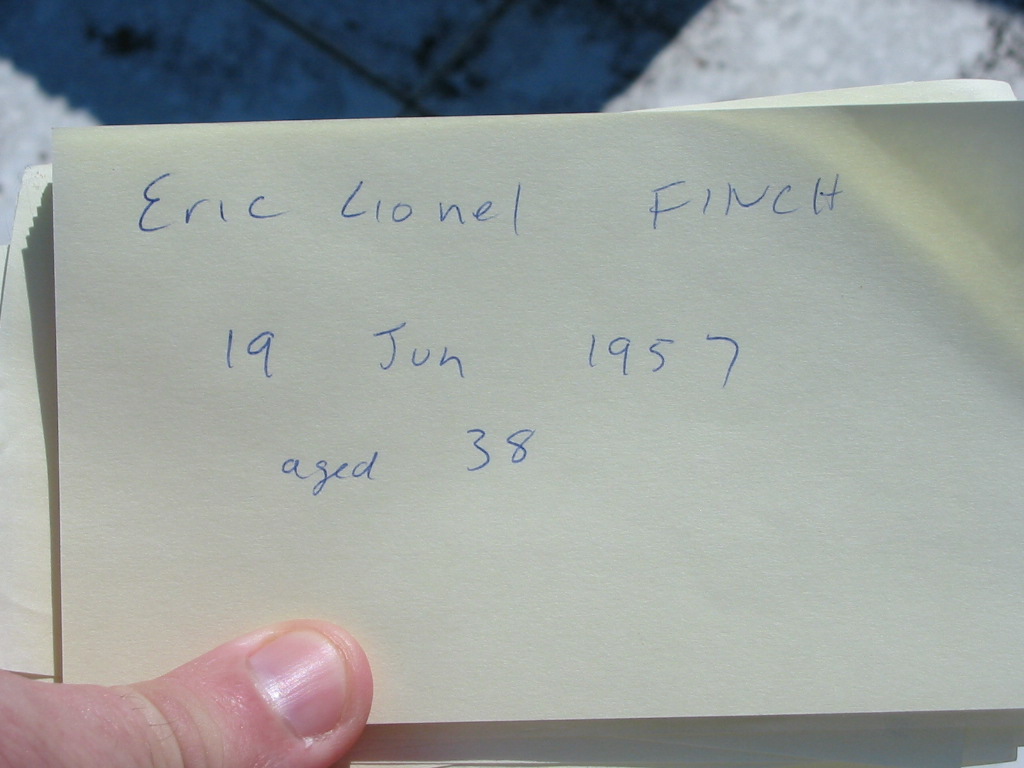 Eric Lionel FINCH
19 Jun 1957
aged 38